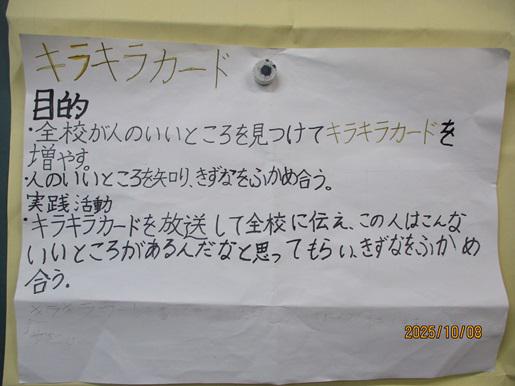 キラキラカード
目的
・全校が人のいいところを見つけてキラキラカードを
増やす。
・人のいいところを知り、きずなをふかめ合う。
実践活動
・キラキラカードを放送して全校に伝え、この人はこんな
いいところがあるんだなと思ってもらい、きずなをふかめ
合う。
2025/10/08